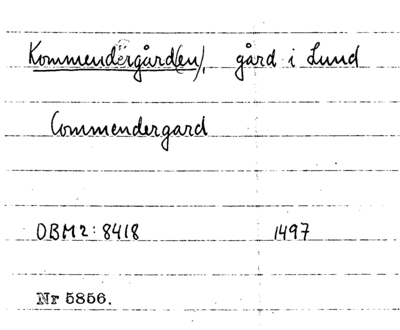 Kommendörgård(en), gård i Lund
Commendergard
DBM2: 8418 1497
Nr 5856.